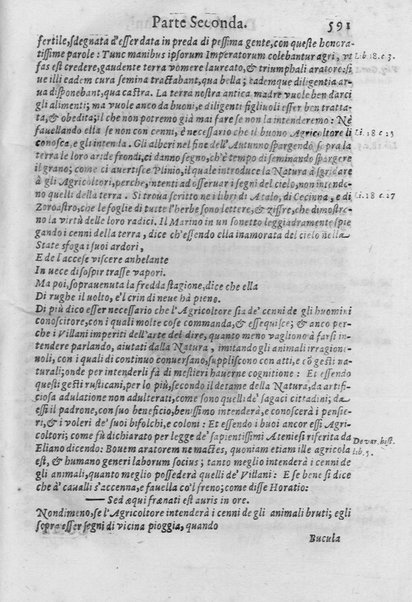 Parte Seconda. 591
fertile, sdegnata d'esser data in preda di pessima gente, con queste honora-
tissime parole: Tunc manibus ipsorum Imperatorum colebantur agri, vt Lib. 18. c. 3.
fas est credere, gaudente terra vomere laureato, & triumphali aratore: si-
ue illi eadem cura semina tractabant, qua bella; eademque diligentia ar-
ua disponebant, qua castra. La terra nostra antica madre vuole ben darci
gli alimenti; ma vuole anco da buoni, e diligenti figliuoli esser ben tratta-
ta, & obedita; il che non potremo già mai fare se non la intenderemo: Nè
fauellando ella se non con cenni, è necessario che il buono Agricoltore li Li. 18 c. 25
conosca, e gl'intenda. Gli alberi nel fine dell'Autunno spargendo sopra la
terra le loro aride frondi, ci danno segno, ch'è tempo di seminando spargere
il grano; come ci auertisce Plinio, il quale introduce la Natura à sgridare
à gli Agricoltori, perche, intenti ad osseruar i segni del cielo, non intendo-
no quelli della terra. Si troua scritto ne i libri di Atalo, di Cecinna, e di Li. 18 c. 27
Zoroastro, che le foglie di tutte l'herbe sono lettere, & ziffre, che dimostra-
no la virtù delle loro radici. Il Marino in un sonetto leggiadramente spie
gando i cenni della terra, dice ch'essendo ella inamorata del cielo nella
State sfoga i suoi ardori,
E de l'accese viscere anhelante
In uece di sospir trasse vapori.
Ma poi, soprauenuta la fredda stagione, dice che ella
Di rughe il uolto, e'l crin di neue hà pieno.
Di più dico esser necessario che l'Agricoltore sia de' cenni de gli huomini
conoscitore, con i quali molte cose commanda, & essequisce; & anco per-
che i Villani imperiti dell'arte del dire, quanto meno vagliono à farsi in-
tendere parlando, aiutati dalla Natura, imitando gli animali irragioni-
noli, con i quali di continuo conuersano, suppliscono con atti, e cõ gesti na-
turali; onde per intenderli fà di mestieri hauerne cognitione: Et essendo
questi gesti rusticani, per lo più, secondo il detame della Natura, da artifi-
ciosa adulatione non adulterati, come sono quelli de' sagaci cittadini; da
essi il padrone, con suo beneficio, benissimo intenderà, e conoscerà i pensie-
ri, & i voleri de' suoi bifolchi, e coloni: Et essendo i buoi ancor essi Agri-
coltori; come fù dichiarato per legge de' sapientissimi Ateniesi riferita da
Eliano dicendo: Bouem aratorem ne mactes, quoniam etiam ille agricola De var. hist. lib. 5.
est, & humano generi laborum socius; tanto meglio intenderà i cenni de
gli animali, quanto meglio possederà quelli de' Villani: E se bene si dice
che à caualli s'accenna, e fauella co'l freno; come disse Horatio:
—— Sed aqui frenati est auris in ore.
Nondimeno, se l'Agricoltore intenderà i cenni de gli animali bruti; egli
soprà esser segni di vicina pioggia, quando
Bucula